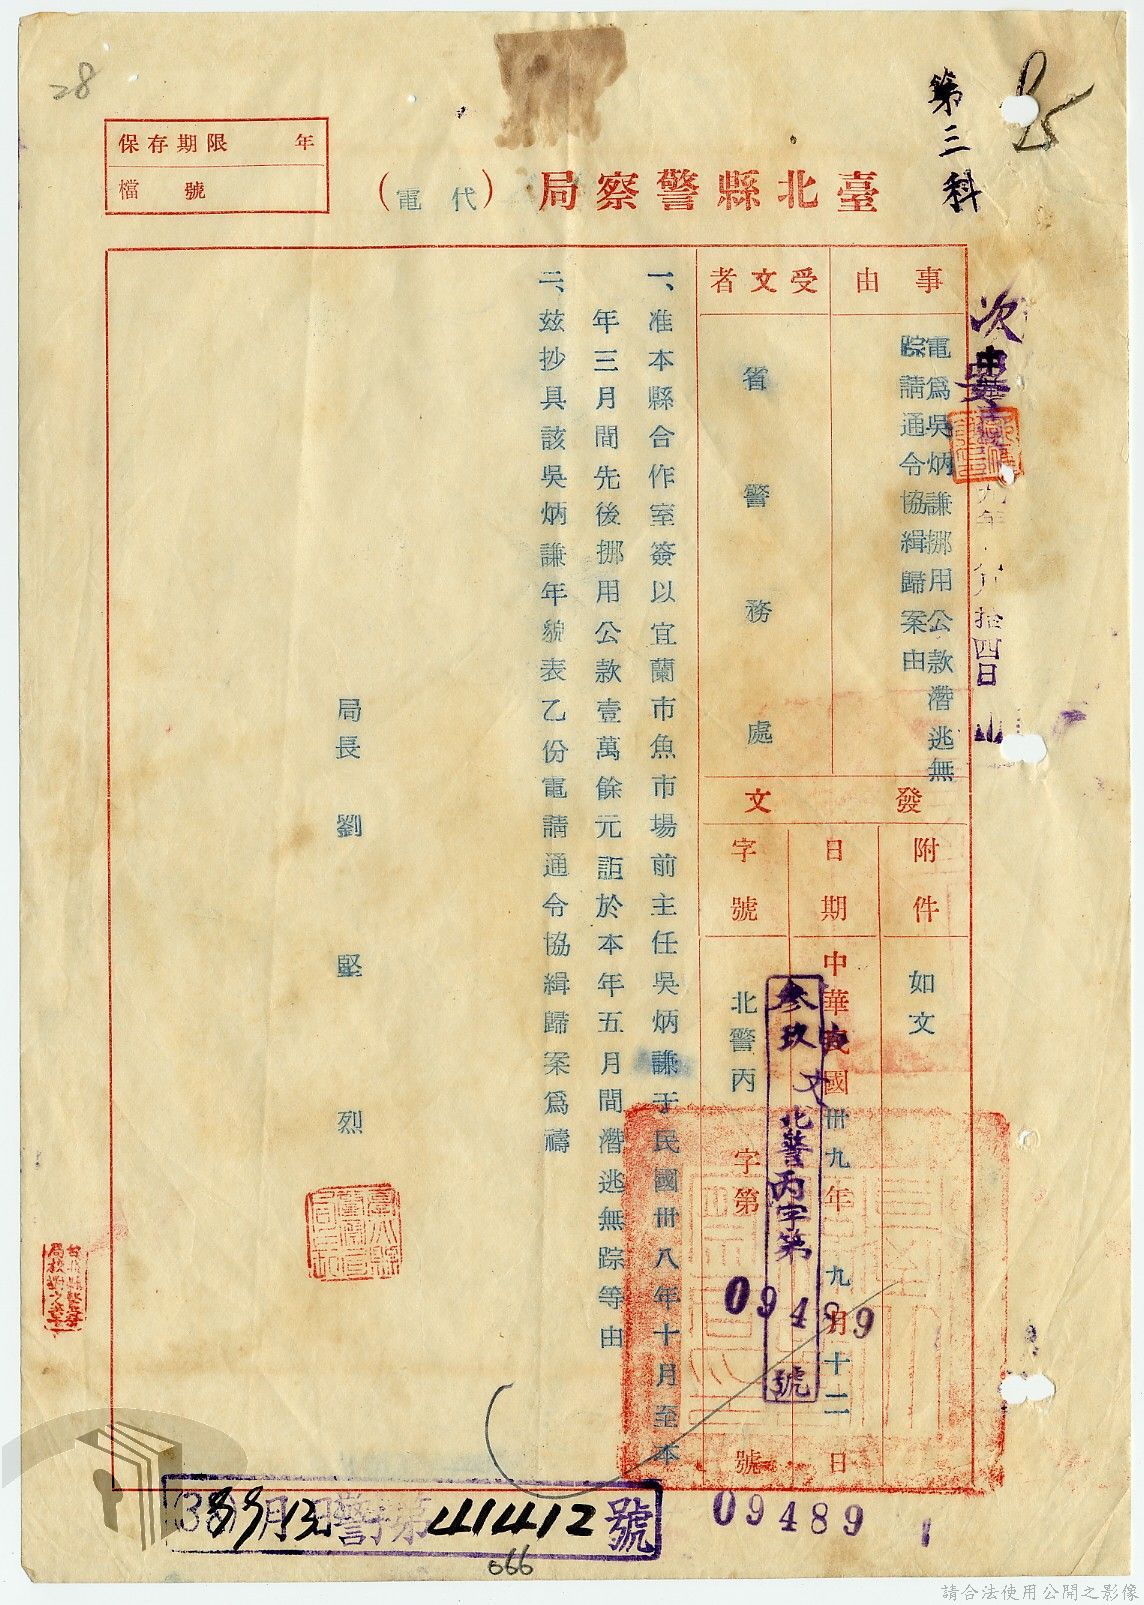 28
第三科
保存期限　年
檔　號
臺北縣警察局（代電）
事由
電爲吳炳謙挪用公款潛逃無
踪請通令協緝歸案由
受文者
省警務處
發文
附件
如文
日期
中華民國卅九年九月十二日
字號
北警丙字第09489號
叁玖
北警丙字第
號
拾四日
一、准本縣合作室簽以宜蘭市魚市場前主任吳炳謙于民國卅八年十月至本
年三月間先後挪用公款壹萬餘元詎於本年五月間潛逃無踪等由
二、茲抄具該吳炳謙年貌表乙份電請通令協緝歸案爲禱
局長　劉堅烈
39 9月13日警第41412號
09489
066
請合法使用公開之影像